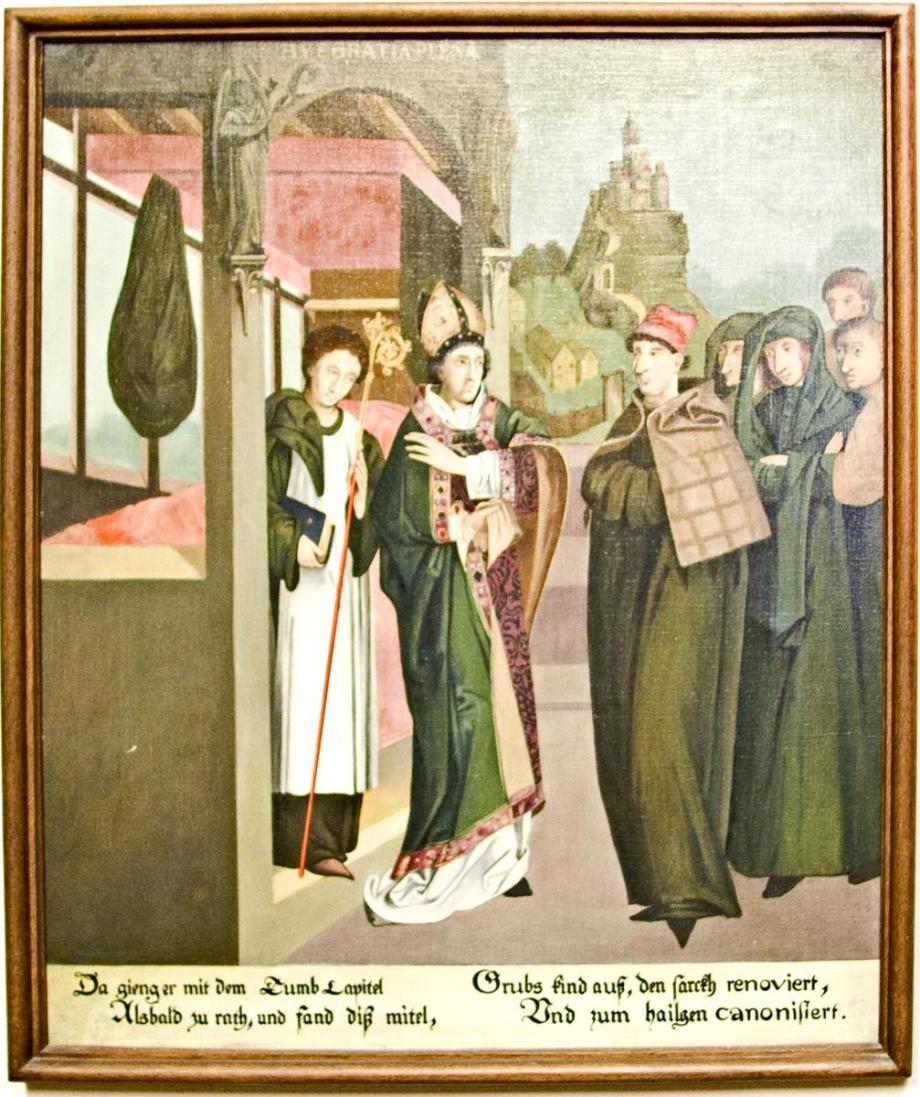 AVE GRATIA PLENA
Da gieng er mit dem Tumb Capitel
Alsbald zu rath, und fand diß mitel,
Grubs kind auß, den ſarckh renoviert,
Vnd zum hailgen canoniſiert.